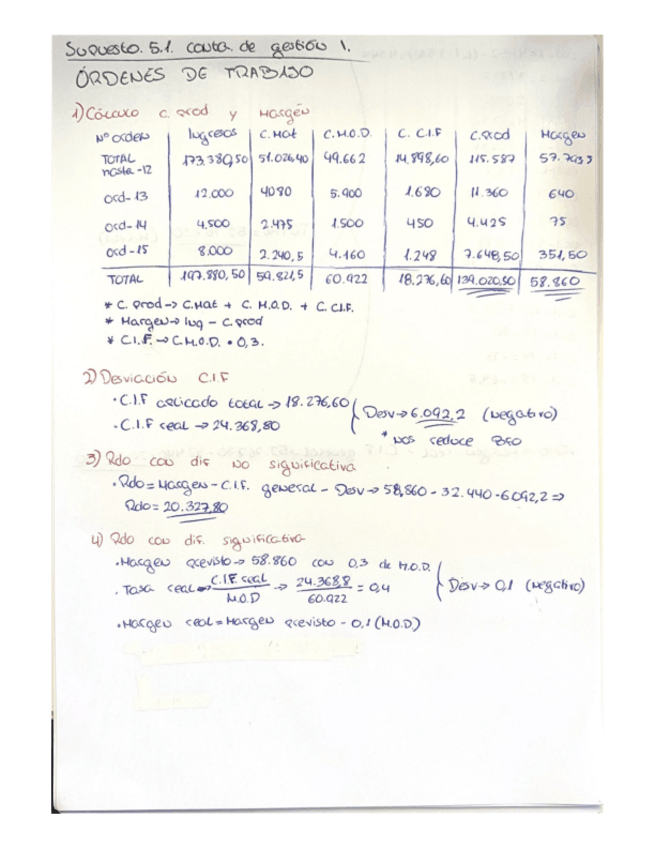 Supuesto. 5.1. conta. de gestión 1.
ÓRDENES DE TRABAJO
1) Cálculo c. prod y Margen
Nº orden Ingresos C. Mat C.M.O.D. C. C.I.F C.Prod Margen
TOTAL hasta -12 173.380,50 51.026,40 49.662 14.898,60 115.587
ord- 13 12.000 4080 5.900 1.680 11.360 640
ord- 14 4.500 2.475 1.500 450 4.425 75
ord- 15 8.000 2.240,5 4.160 1.248 7.648,50 351,50
TOTAL 197.880,50 59.821,5 60.922 18.276,60 139.020,50 58.860
* C. Prod -> C.Mat + C. M.O.D. + C. C.I.F.
* Margen -> Ing - C.prod
* C.I.F. -> C.M.O.D. • 0,3.
2) Desviación C.I.F
• C.I.F aplicado total -> 18.276,60
• C.I.F real -> 24.368,80
Desv -> 6.092,2 (negativo)
* nos reduce Bfo
3) Rdo con dif. no significativa
• Rdo = Margen - C.I.F. general - Desv -> 58,860 - 32.440 - 6092,2 =>
Rdo = 20.327,80
4) Rdo con dif. significativa
• Margen previsto -> 58.860 con 0,3 de M.O.D.
• Tasa real -> C.I.F real / M.O.D -> 24.368,8 / 60.922 = 0,4
Desv -> 0,1 (negativo)
• Margen real = Margen previsto - 0,1 (M.O.D)